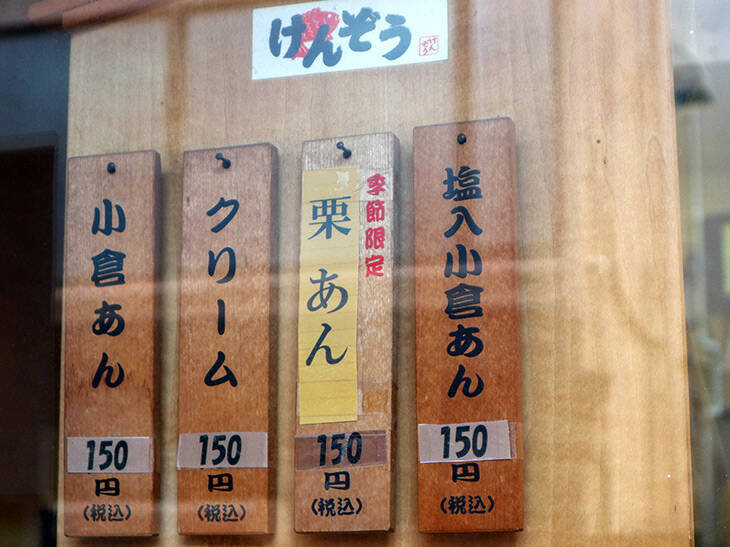 けんぞう
小倉あん
150
円
(税込)
クリーム
150
円
(税込)
季節限定
栗あん
150
円
(税込)
塩入小倉あん
150
円
(税込)